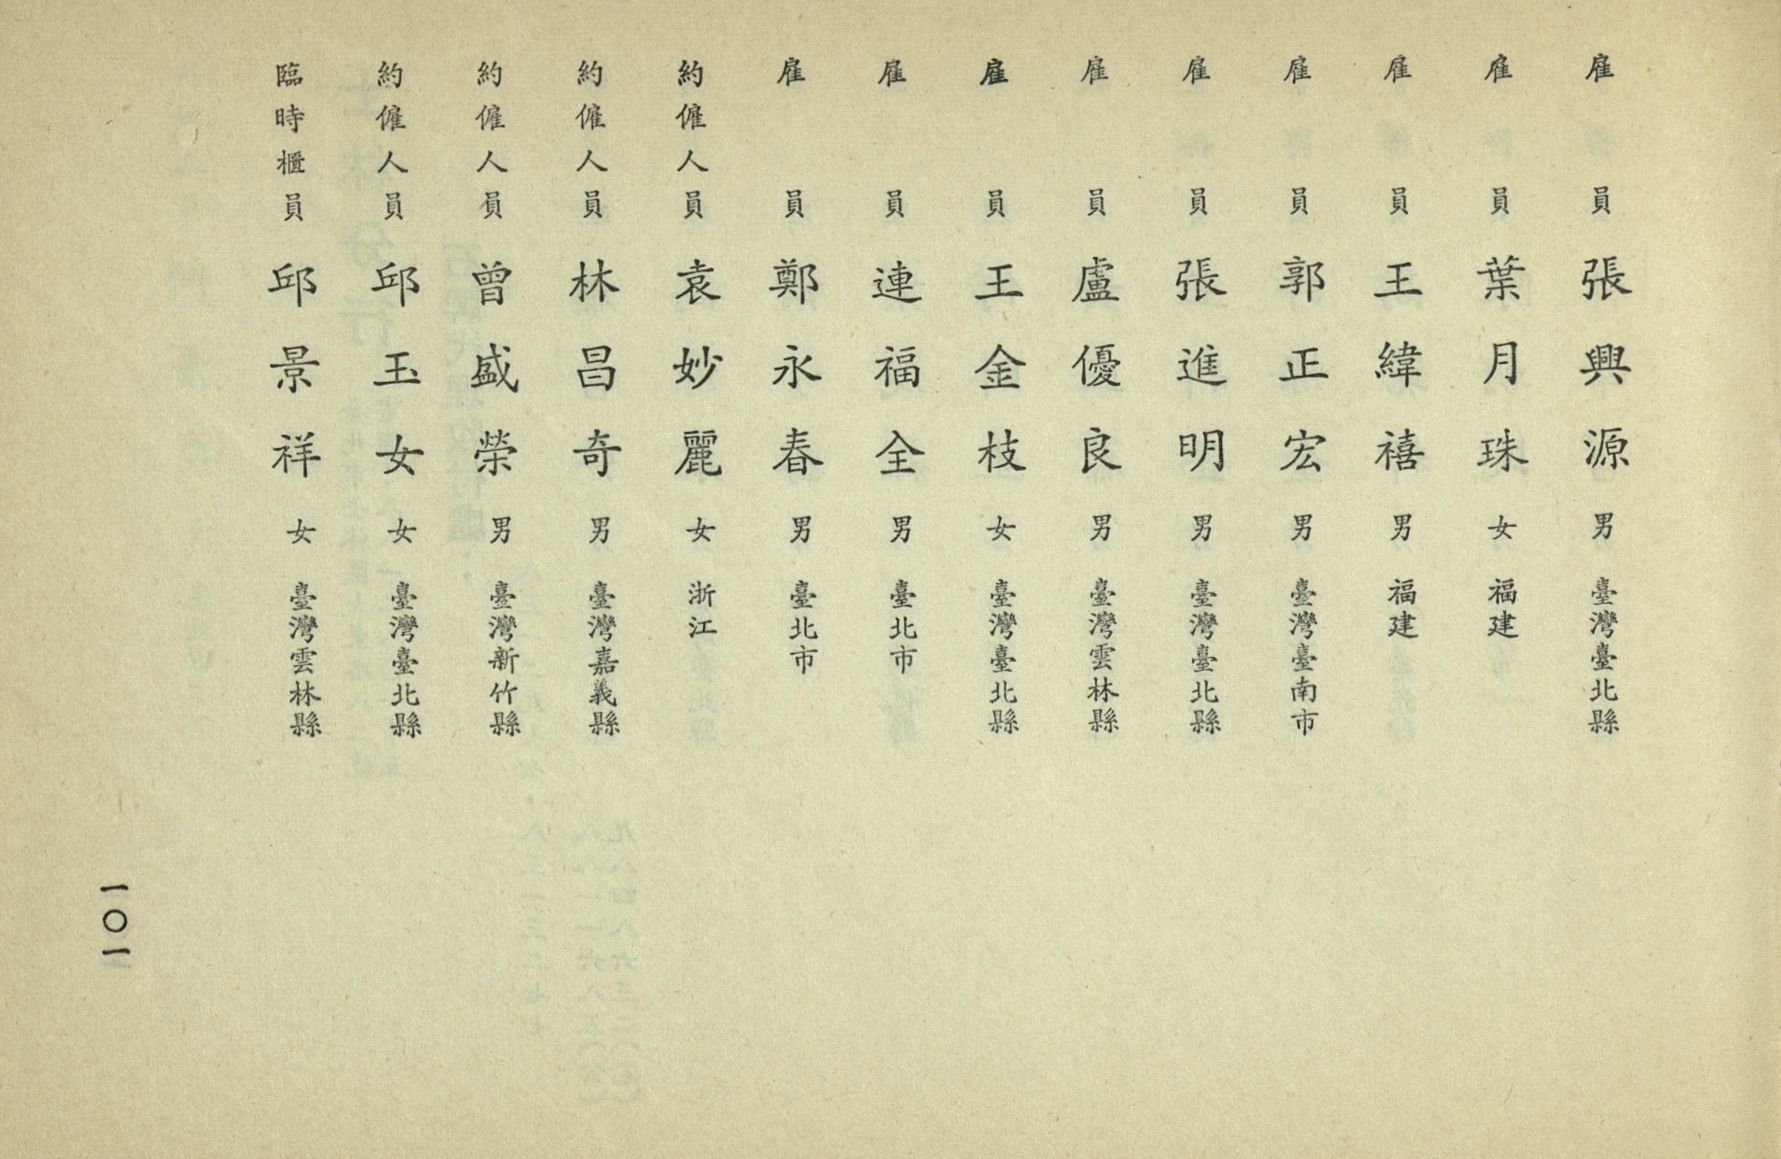 雇員 張興源 男 臺灣臺北縣
雇員 葉月珠 女 福建
雇員 王緯禧 男 福建
雇員 郭正宏 男 臺灣臺南市
雇員 張進明 男 臺灣臺北縣
雇員 盧優良 男 臺灣雲林縣
雇員 王金枝 女 臺灣臺北縣
雇員 連福全 男 臺北市
雇員 鄭永春 男 臺北市
約僱人員 袁妙麗 女 浙江
約僱人員 林昌奇 男 臺灣嘉義縣
約僱人員 曾盛榮 男 臺灣新竹縣
約僱人員 邱玉女 女 臺灣臺北縣
臨時櫃員 邱景祥 女 臺灣雲林縣
一〇一